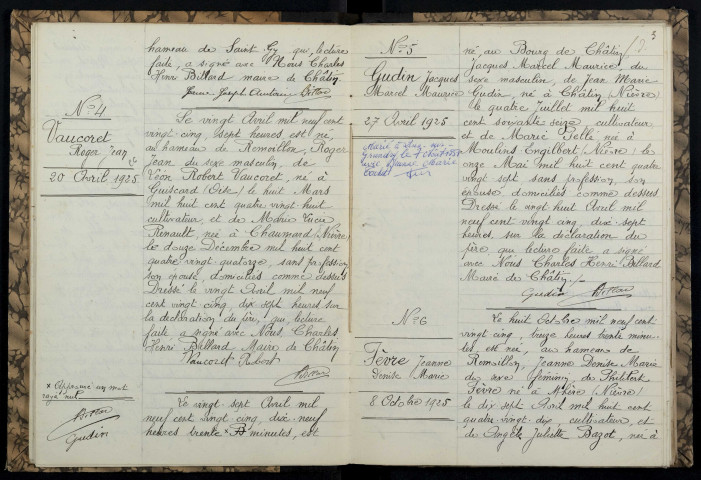 hameau de Saint Gy qui, lecture
faite, a signé avec Nous Charles
Henri Billard maire de Châtin
N° 4
Vaucoret
Roger Jean
20 Avril 1925
Le vingt Avril mil neuf cent
vingt cinq, sept heures, est né,
au hameau de Remoillon, Roger
Jean du sexe masculin, de
Léon Robert Vaucoret, né à
Guiscard (Oise) le huit Mars
mil huit cent quatre vingt huit
cultivateur, et de Marie Lucie
Renault, née à Chaumard (Nièvre)
le douze Décembre mil huit cent
quatre vingt quatorze, sans profession
son épouse, domiciliés comme dessus
Dressé le vingt Avril mil neuf
cent vingt cinq, dix sept heures sur
la déclaration du père, qui, lecture
faite a signé avec Nous, Charles
Henri Billard Maire de Châtin
Vaucoret Robert
x Approuvé un mot
rayé nul
Gudin
Le vingt sept Avril mil
neuf cent vingt cinq, dix neuf
heures trente x minutes, est
5
N° 5
Gudin Jacques
Marcel Maurice
27 Avril 1925
né au Bourg de Châtin
Jacques Marcel Maurice, du
sexe masculin, de Jean Marie
Gudin, né à Châtin (Nièvre)
le quatre Juillet mil huit
cent soixante seize, cultivateur
et de Marie Bellé née à
Moulins Engilbert (Nièvre) le
onze Mai mil huit cent quatre
vingt sept sans profession, son
épouse domiciliés comme dessus
Dressé le vingt huit Avril mil
neuf cent vingt cinq, dix sept
heures, sur la déclaration du
père, qui lecture faite a signé
avec Nous Charles Henri Billard
Maire de Châtin ./.
Gudin
N° 6
Fèvre Jeanne
Denise Marie
8 Octobre 1925
Le huit Octobre mil neuf cent
vingt cinq, treize heures trente minu-
tes, est née, au hameau de
Remoillon, Jeanne Denise Marie
du sexe féminin, de Philibert
Fèvre né à (Nièvre)
le dix sept Avril mil huit cent
quatre vingt dix cultivateur, et
de Angèle Juliette Bazot, née à